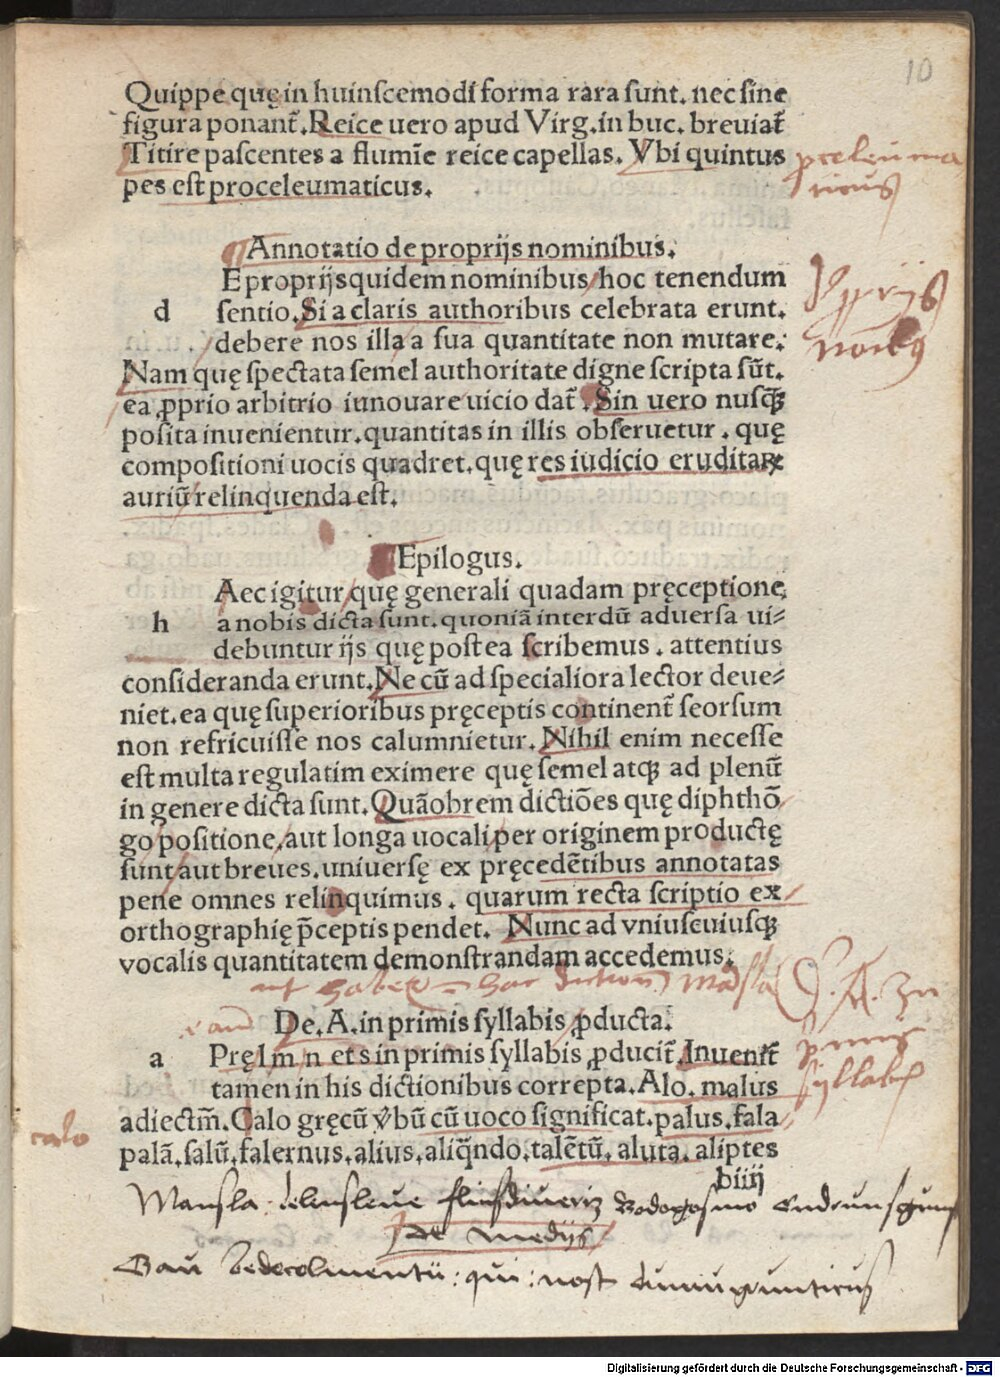 10
Quippe quę in huiuſcemodi forma rara ſunt. nec ſine
figura ponant̃. Reice uero apud Virg. in buc. breuiat̃
Titire paſcentes a flumīe reice capellas. Vbi quintus
pes eſt proceleumaticus.
proceleuma
ticus
¶ Annotatio de proprijs nominibus.
E proprijs quidem nominibus hoc tenendum
d ſentio. Si a claris authoribus celebrata erunt.
debere nos illa a ſua quantitate non mutare.
Nam quę ſpectata ſemel authoritate digne ſcripta ſūt.
ea ꝓprio arbitrio innouare uicio dat̃. Sin uero nuſꝗ̃
poſita inuenientur. quantitas in illis obſeruetur. quę
compoſitioni uocis quadret. quę res iudicio eruditaꝝ
auriū relinquenda eſt.
¶ Epilogus.
Aec igitur quę generali quadam pręceptione
h a nobis dicta ſunt. quoniā interdū aduerſa ui⸗
debuntur ijs quę poſt ea ſcribemus. attentius
conſideranda erunt. Ne cū ad ſpecialiora lector deue⸗
niet. ea quę ſuperioribus pręceptis continent̃ ſeorſum
non refricuiſſe nos calumnietur. Nihil enim neceſſe
eſt multa regulatim eximere quę ſemel atqꝫ ad plenū
in genere dicta ſunt. Quāobrem dictiōes quę diphthō
go poſitione, aut longa uocali per originem productę
ſunt aut breues. uniuerſę ex pręcedētibus annotatas
pene omnes relinquimus. quarum recta ſcriptio ex
orthographię p̄ceptis pendet. Nunc ad vniuſcuiuſqꝫ
vocalis quantitatem demonſtrandam accedemus.
De. A. in primis ſyllabis ꝓducta.
a Pręl m n et s in primis ſyllabis ꝓducit̃. Inuenit̃
tamen in his dictionibus correpta. Alo. malus
adiectm̃. Calo gręcū v̓bū cū uoco ſignificat. palus. fala
calo
palā. ſalū. falernus. alius. aliq̄ndo. talētū. aluta. aliptes
biiij
De medijs
Digitalisierung gefördert durch die Deutsche Forschungsgemeinschaft - DFG